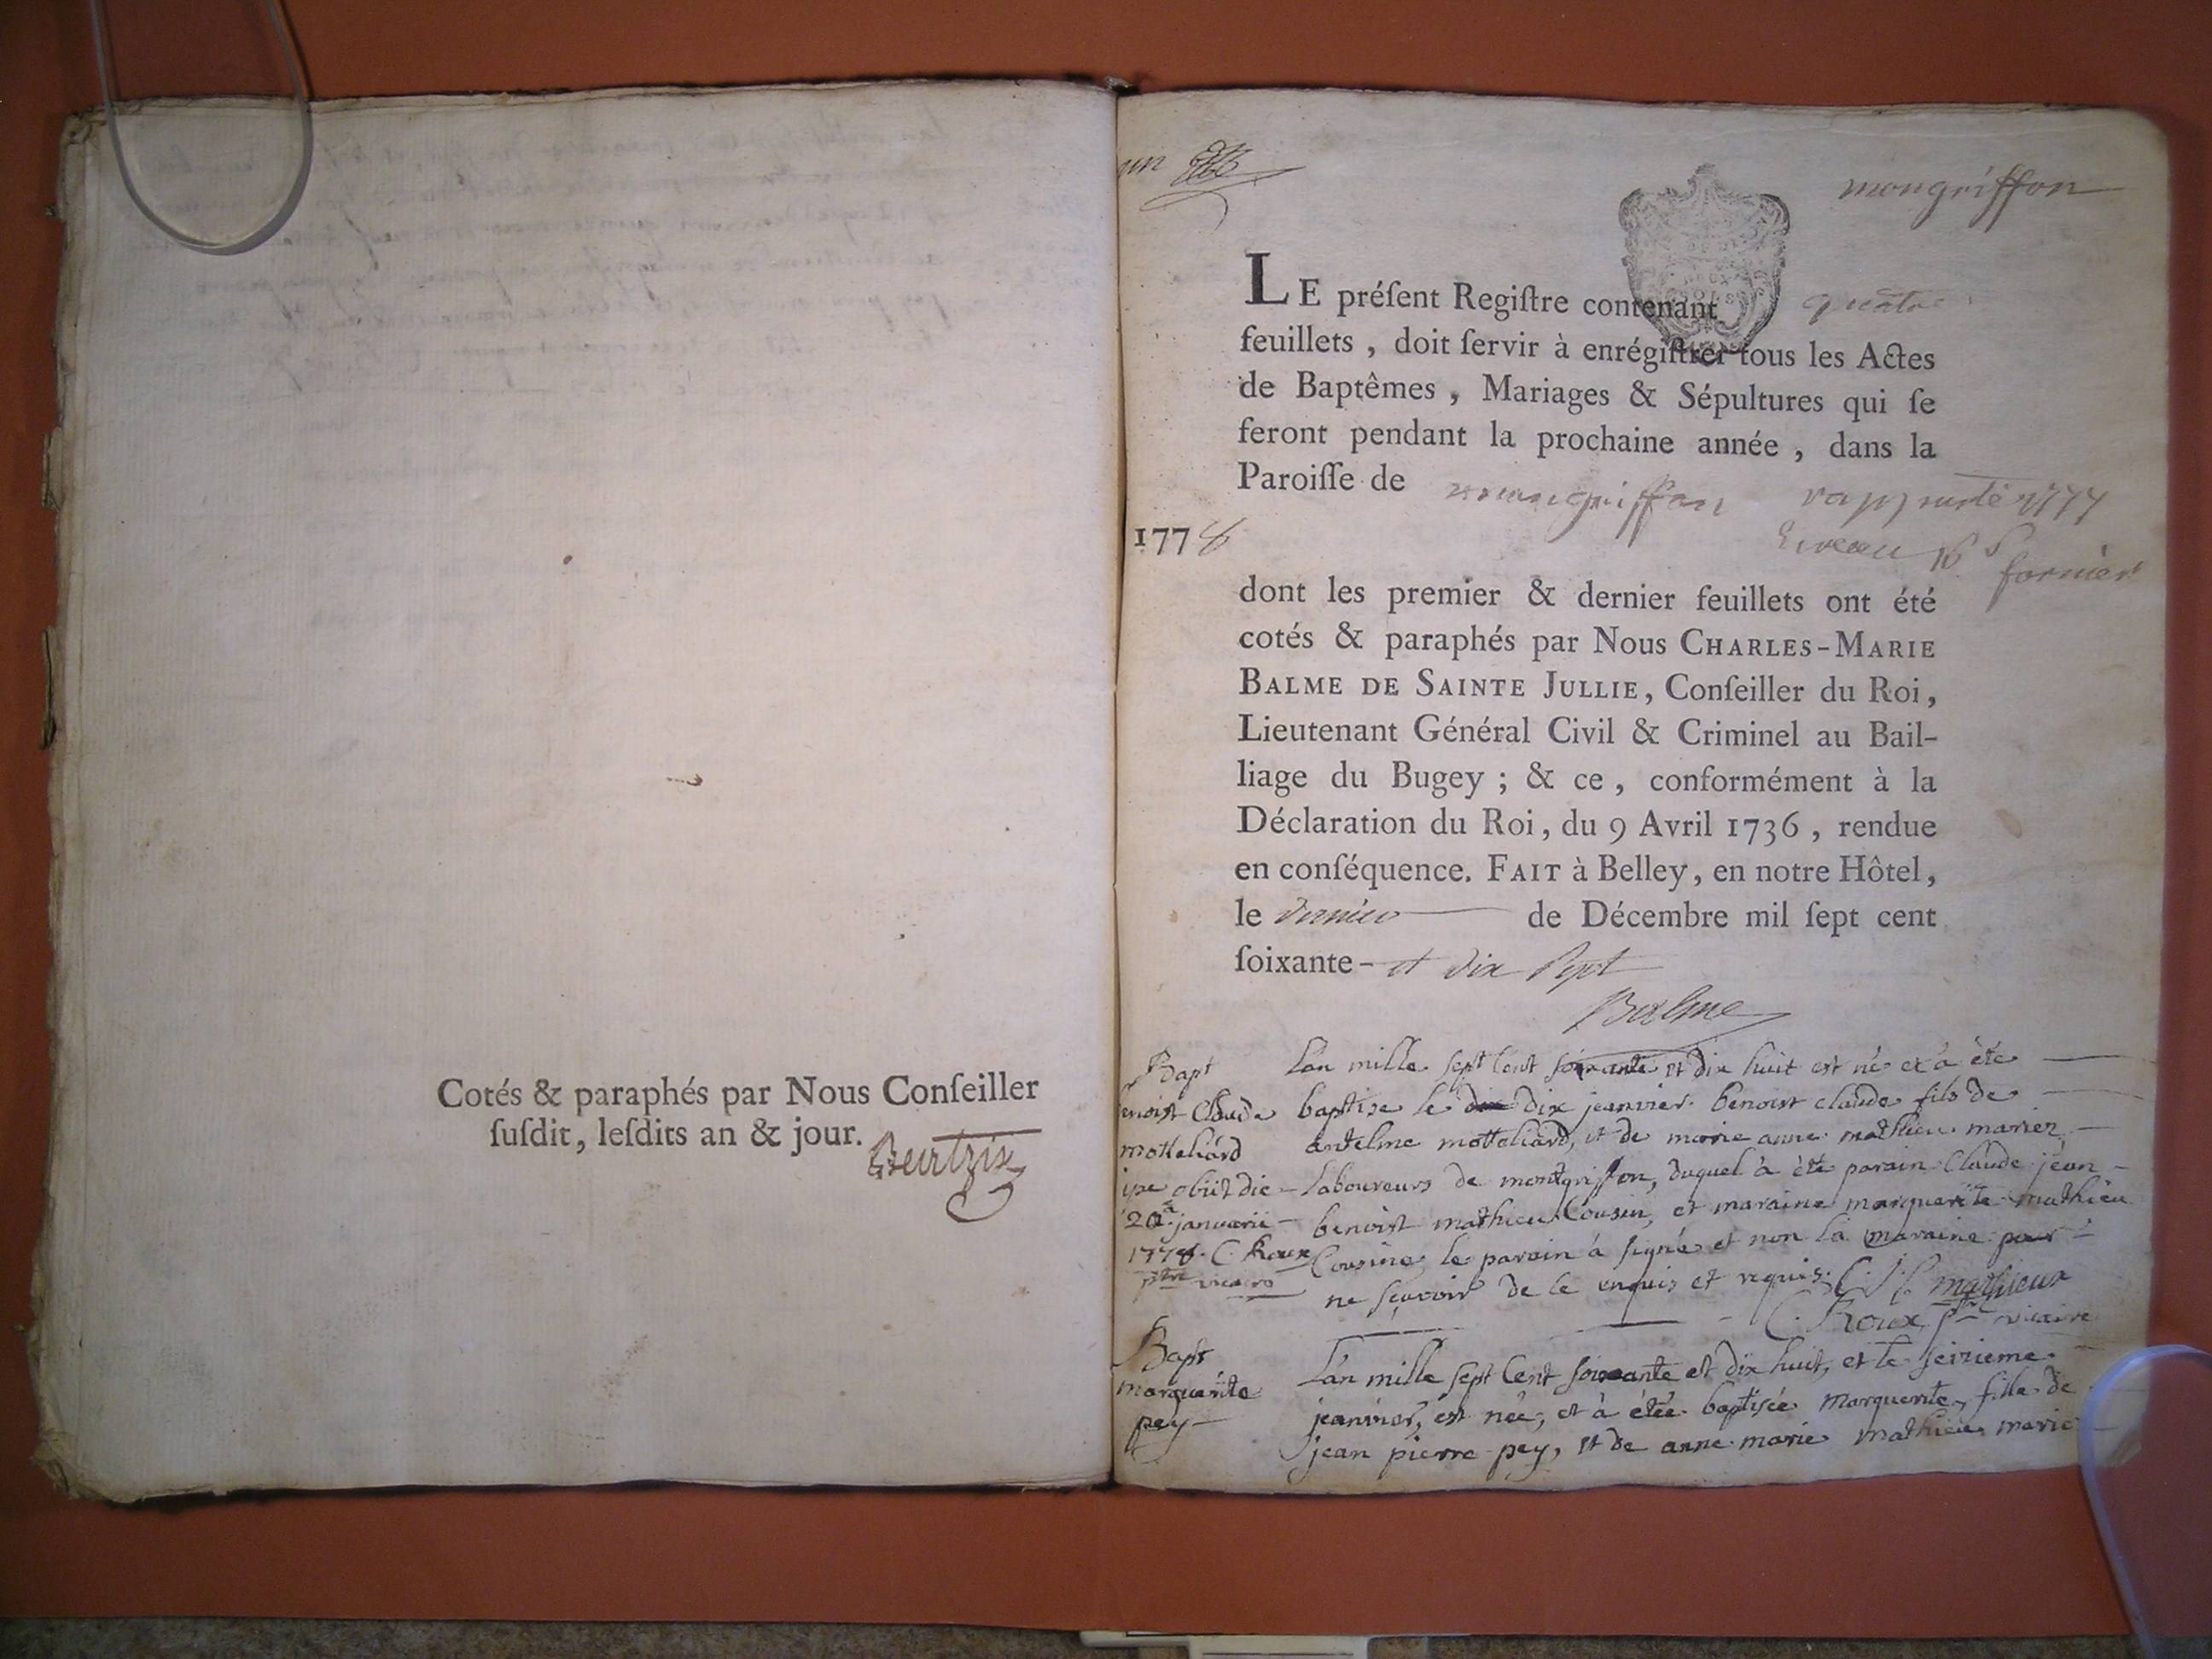 Cotés & paraphés par Nous Conſeiller
ſuſdit, leſdits an & jour.
un
mongriffon
LE préſent Regiſtre contenant quatre
feuillets , doit ſervir à enrégiſtrer tous les Actes
de Baptêmes , Mariages & Sépultures qui ſe
feront pendant la prochaine année , dans la
Paroiſſe de mongriffon rapporté 1777
1778
fornier
dont les premier & dernier feuillets ont été
cotés & paraphés par Nous CHARLES-MARIE
BALME DE SAINTE JULLIE, Conſeiller du Roi,
Lieutenant Général Civil & Criminel au Bail-
liage du Bugey ; & ce , conformément à la
Déclaration du Roi, du 9 Avril 1736 , rendue
en conſéquence. FAIT à Belley, en notre Hôtel,
le dernier de Décembre mil ſept cent
ſoixante- et dix sept
Balme
Bapt
enoist Claude
motteliard
ipse obiit die
20a januarii
1778. C. Roux
ptre vicaire
Lan mille sept Cent soixante et dix huit est né et à été
baptise le dix jeanvier benoist claude fils de
antelme motteliard, et de marie anne mathieu mariez
laboureurs de montgriffon, duquel à été parain Claude jean
benoist mathieu Cousin, et maraine marguerite mathieu
Cousine, le parain à signé et non la maraine pour
ne sçavoir de ce enquis et requis. C. J. B mathieux
C. Roux ptre vicaire
Bapt
marguerite
pey
L'an mille sept Cent soixante et dix huit, et le seizieme
jeanvier, est née, et à étée baptisée marguerite, fille de
jean pierre pey, et de anne marie mathieu marie